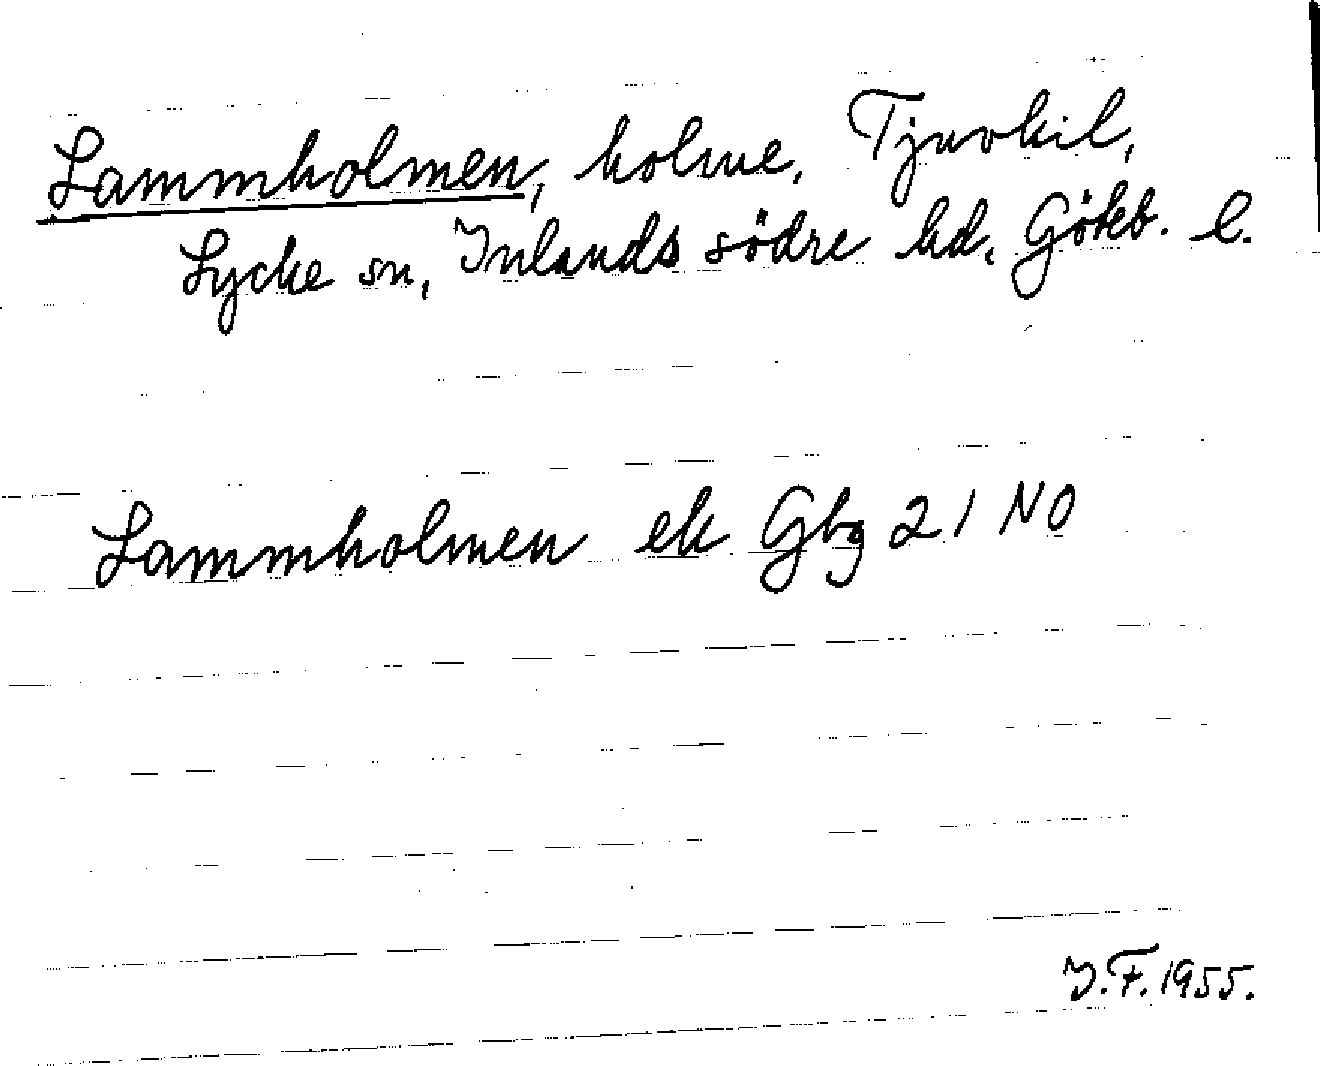 Lammholmen, holme, Tjuvkil,
Lycke sn, Inlands södre hd, Göteb. l.
Lammholmen ek Gbg 21 NO
I.F. 1955.